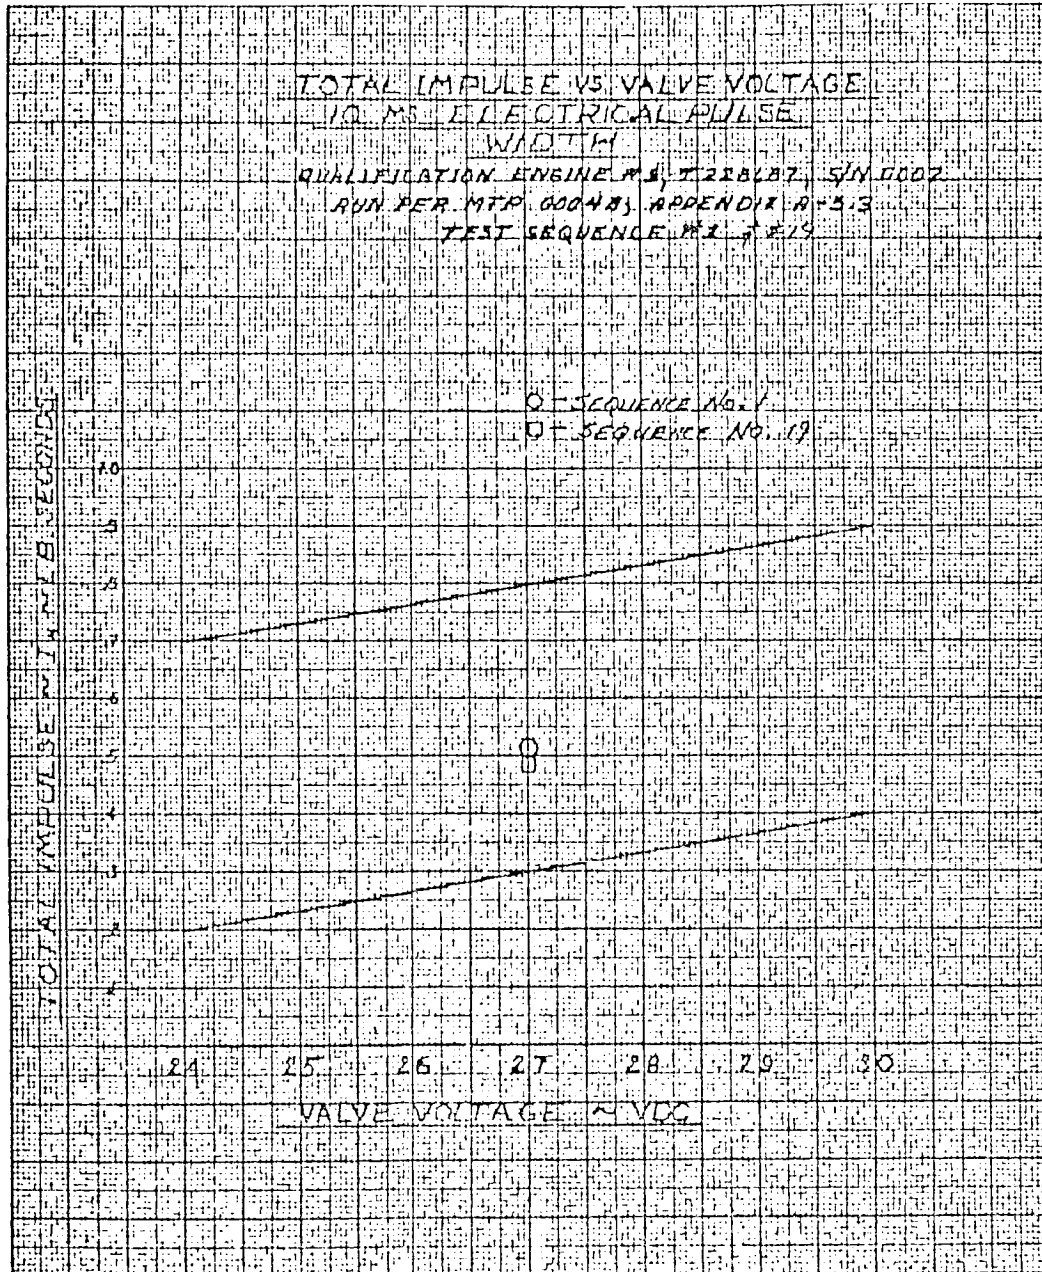 TOTAL IMPULSE VS. VALVE VOLTAGE
10 MS ELECTRICAL PULSE
WIDTH
QUALIFICATION ENGINE S/N 0007
RUN PER MTP APPENDIX A-5.3
TEST SEQUENCE # 19
O - SEQUENCE NO. 1
□ - SEQUENCE NO. 19
TOTAL IMPULSE ~ LB SECONDS
1.0
.9
.8
.7
.6
.5
.4
.3
.2
.1
24 25 26 27 28 29 30
VALVE VOLTAGE ~ VDC